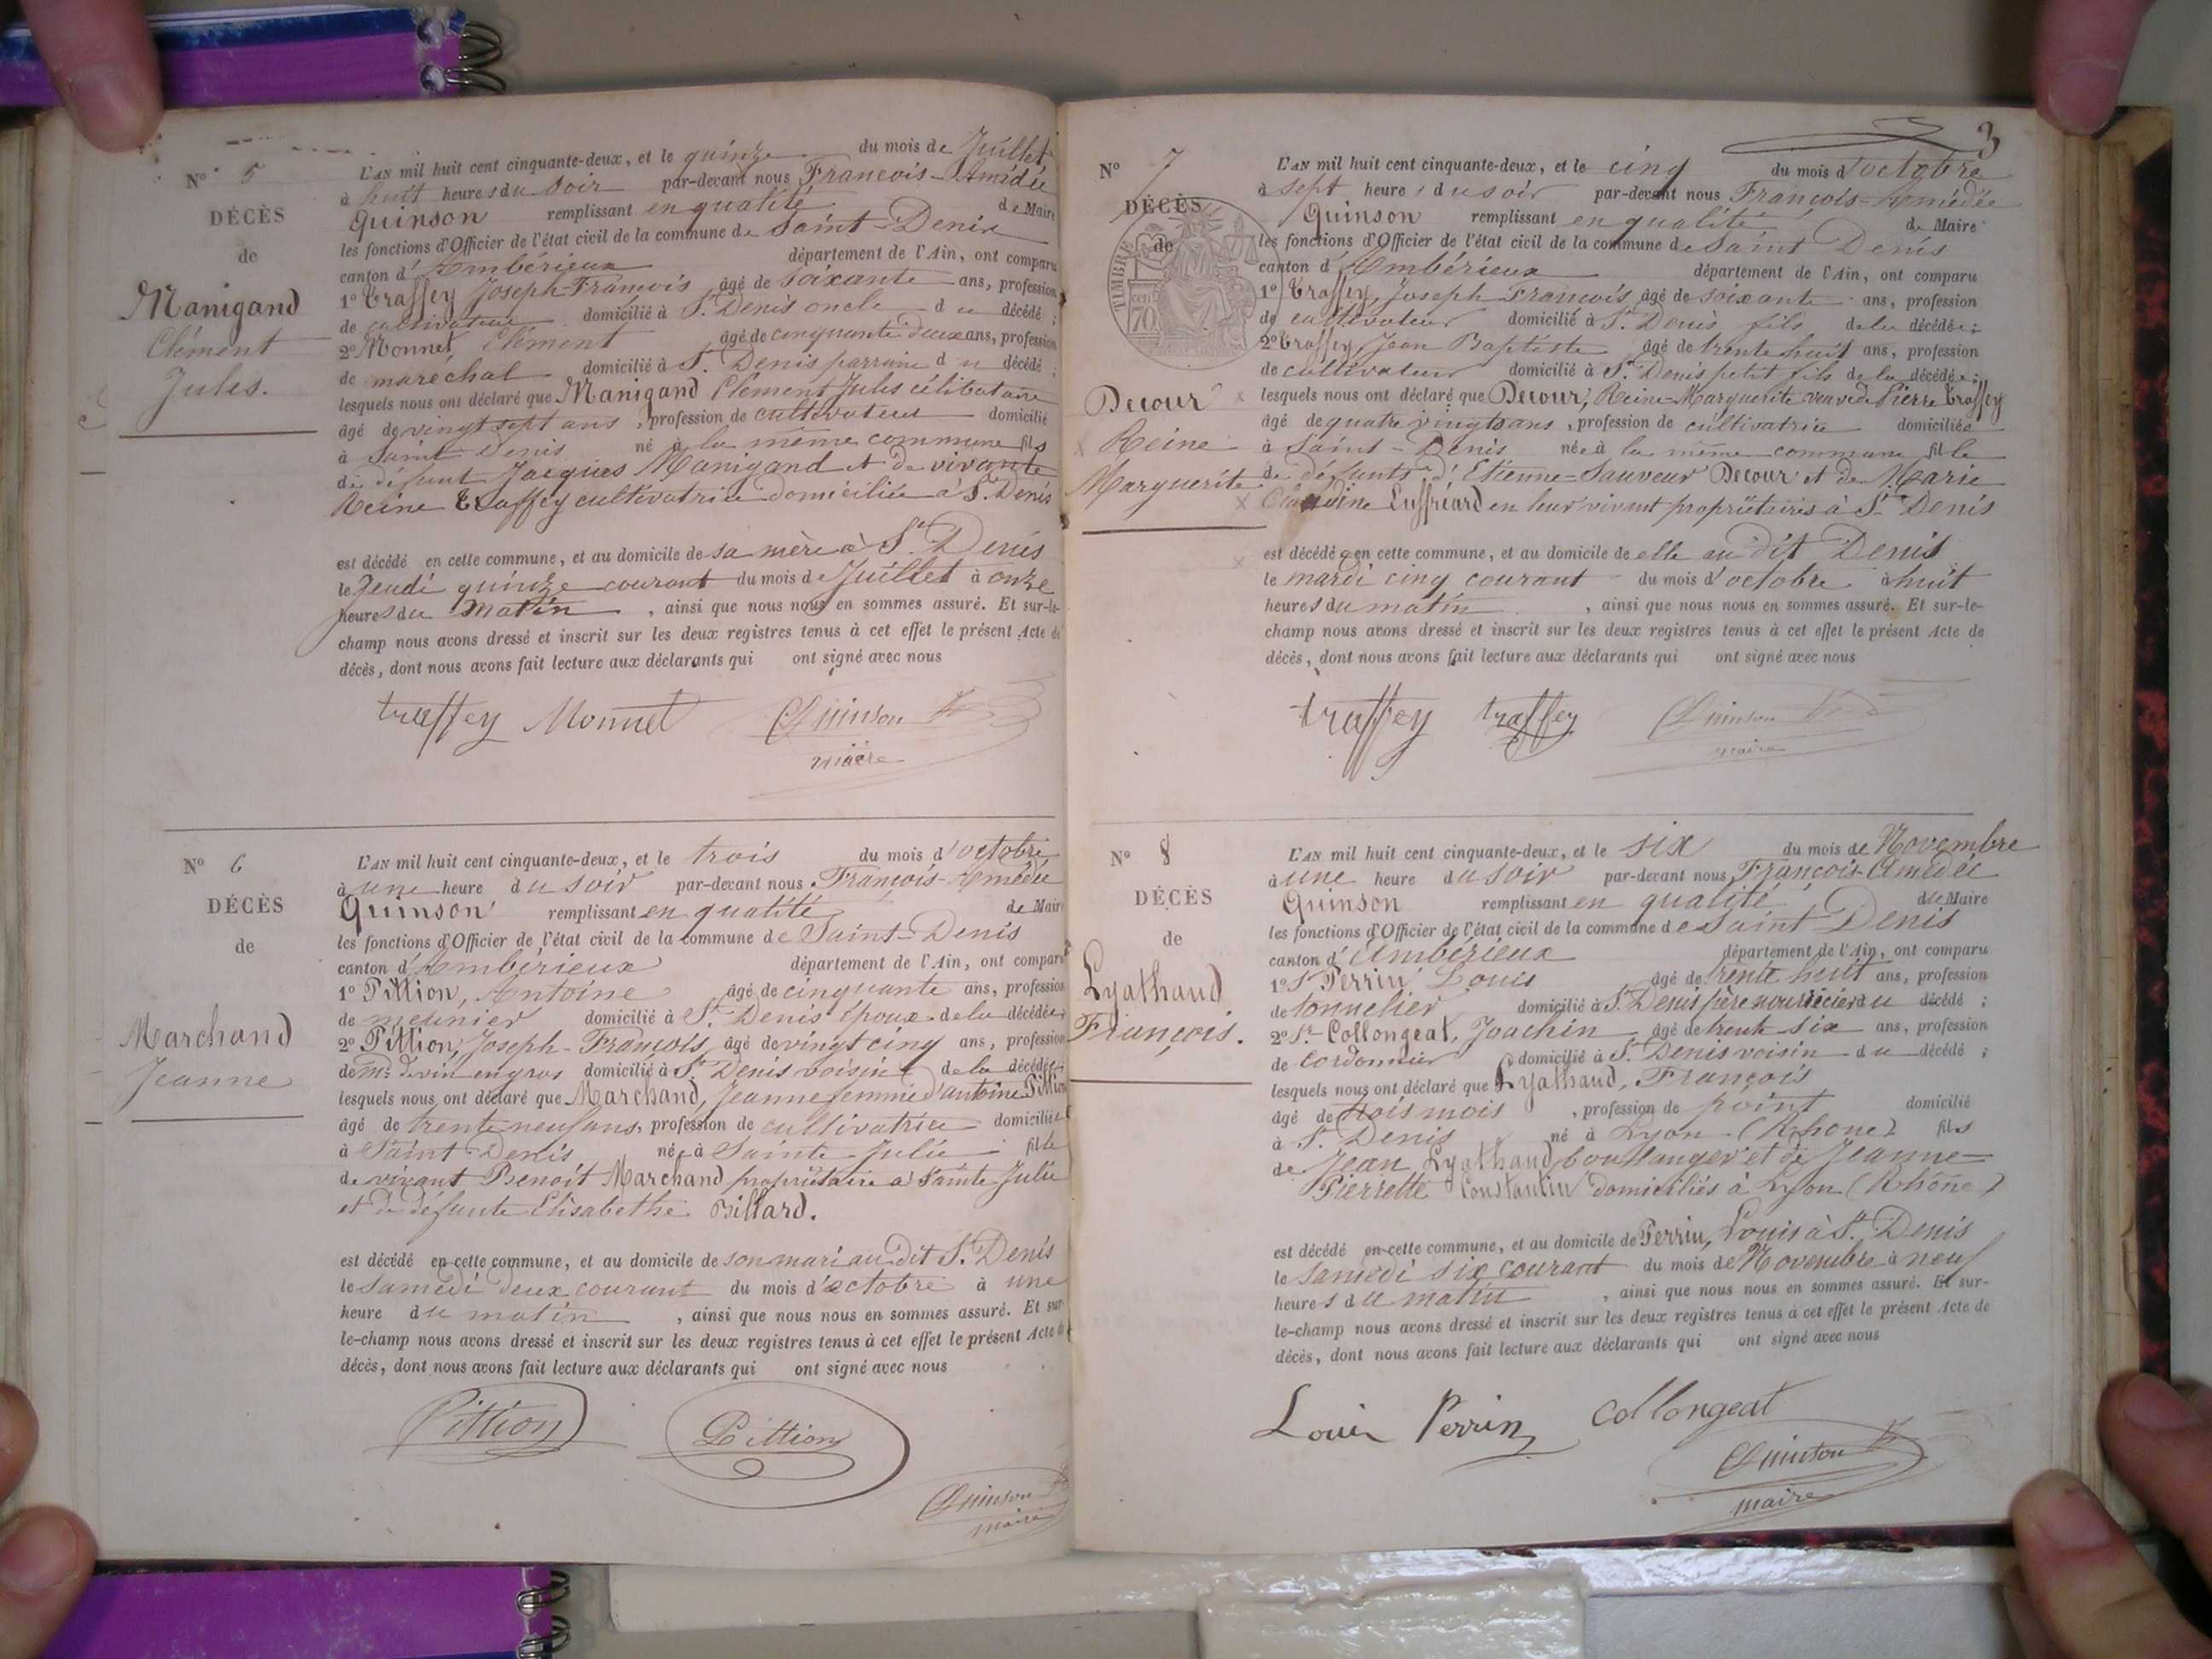 N° 5
DÉCÈS
de
Manigand
Clément
Jules.
L'AN mil huit cent cinquante-deux, et le quinze du mois de Juillet
à huit heures du soir par-devant nous François-Amédée
Quinson remplissant en qualité de Maire
les fonctions d'Officier de l'état civil de la commune de Saint-Denis
canton d'Ambérieux département de l'Ain, ont comparu
1° Traffey Joseph-François âgé de soixante ans, profession
de cultivateur domicilié à St. Denis oncle du décédé ;
2° Monnet Clément âgé de cinquante deux ans, profession
de maréchal domicilié à St. Denis parrain du décédé ;
lesquels nous ont déclaré que Manigand Clément Jules célibataire
âgé de vingt sept ans, profession de cultivateur domicilié
à Saint Denis né à la même commune fils
de défunt Jacques Manigand et de vivante
Reine Traffey cultivatrice domiciliée à St. Denis
est décédé en cette commune, et au domicile de sa mère à St. Denis
le Jeudi quinze courant du mois de Juillet à onze
heures du matin, ainsi que nous nous en sommes assuré. Et sur-le-
champ nous avons dressé et inscrit sur les deux registres tenus à cet effet le présent Acte de
décès, dont nous avons fait lecture aux déclarants qui ont signé avec nous
traffey Monnet Quinson
maire
N° 6
DÉCÈS
de
Marchand
Jeanne
L'AN mil huit cent cinquante-deux, et le trois du mois d'octobre
à une heure du soir par-devant nous François-Amédée
Quinson remplissant en qualité de Maire
les fonctions d'Officier de l'état civil de la commune de Saint-Denis
canton d'Ambérieux département de l'Ain, ont comparu
1° Pittion, Antoine âgé de cinquante ans, profession
de meunier domicilié à St. Denis époux de la décédée ;
2° Pittion, Joseph-François âgé de vingt cinq ans, profession
de md. de vin en gros domicilié à St. Denis voisin de la décédée ;
lesquels nous ont déclaré que Marchand, Jeanne femme d'antoine Pittion
âgé de trente neuf ans, profession de cultivatrice domiciliée
à Saint-Denis née à Sainte-Julie fille
de vivant Benoît Marchand propriétaire à Sainte Julie
et de défunte Elisabethe Billard.
est décédé en cette commune, et au domicile de son mari au dit St. Denis
le samedi deux courant du mois d'octobre à une
heure du matin, ainsi que nous nous en sommes assuré. Et sur
le-champ nous avons dressé et inscrit sur les deux registres tenus à cet effet le présent Acte de
décès, dont nous avons fait lecture aux déclarants qui ont signé avec nous
Pittion Pittion
Quinson
maire
3
N° 7
DÉCÈS
de
TIMBRE
70
Decour
Reine
Marguerite
L'AN mil huit cent cinquante-deux, et le cinq du mois d'octobre
à sept heures du soir par-devant nous François-Amédée
Quinson remplissant en qualité de Maire
les fonctions d'Officier de l'état civil de la commune de Saint Denis
canton d'Ambérieux département de l'Ain, ont comparu
1° Traffey, Joseph François âgé de soixante ans, profession
de cultivateur domicilié à St. Denis fils de la décédée ;
2° Traffey, Jean Baptiste âgé de trente huit ans, profession
de cultivateur domicilié à St. Denis petit fils de la décédée ;
lesquels nous ont déclaré que Decour, Reine-Marguerite veuve de Pierre Traffey
âgé de quatre vingts ans, profession de cultivatrice domiciliée
à Saint-Denis née à la même commune fille
de défunts d'Etienne-Sauveur Decour et de Marie
Claudine Luffriard en leur vivant propriétaires à St. Denis
est décédée en cette commune, et au domicile de elle au dit Denis
le mardi cinq courant du mois d'octobre à huit
heures du matin, ainsi que nous nous en sommes assuré. Et sur-le-
champ nous avons dressé et inscrit sur les deux registres tenus à cet effet le présent Acte de
décès, dont nous avons fait lecture aux déclarants qui ont signé avec nous
traffey traffey Quinson
maire
N° 8
DÉCÈS
de
Lyathaud
François.
L'AN mil huit cent cinquante-deux, et le six du mois de Novembre
à une heure du soir par-devant nous François-Amédée
Quinson remplissant en qualité de Maire
les fonctions d'Officier de l'état civil de la commune de Saint-Denis
canton d'Ambérieux département de l'Ain, ont comparu
1° St Perrin Louis âgé de trente huit ans, profession
de tonnelier domicilié à St. Denis père nourricier du décédé ;
2° Sr. Collongeat, Joachin âgé de trente six ans, profession
de Cordonnier domicilié à St. Denis voisin du décédé ;
lesquels nous ont déclaré que Lyathaud, François
âgé de trois mois, profession de point domicilié
à St. Denis né à Lyon (Rhône) fils
de Jean Lyathaud boullanger et de Jeanne=
Pierrette Constantin domiciliés à Lyon (Rhône)
est décédé en cette commune, et au domicile de Perrin, Louis à St. Denis
le samedi six courant du mois de Novembre à neuf
heures du matin, ainsi que nous nous en sommes assuré. Et sur-
le-champ nous avons dressé et inscrit sur les deux registres tenus à cet effet le présent Acte de
décès, dont nous avons fait lecture aux déclarants qui ont signé avec nous
Louis Perrin Collongeat
Quinson
maire